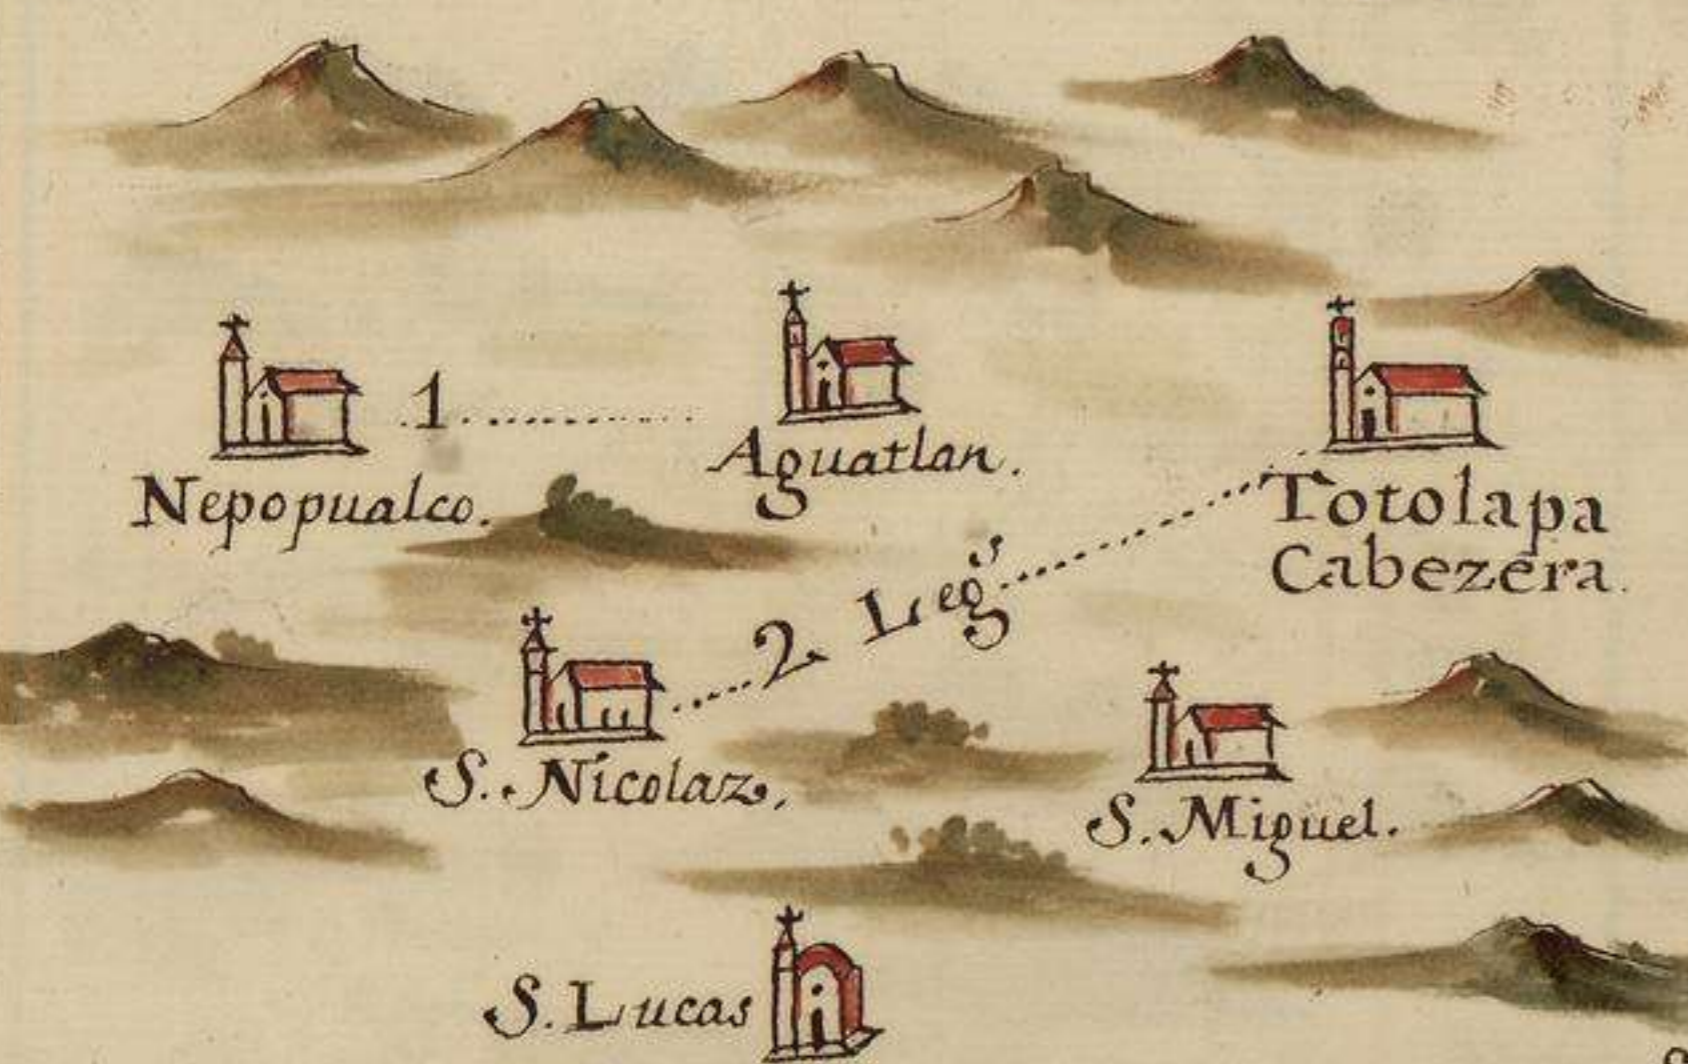 1
Nepopualco.
Aguatlan.
Totolapa
Cabezera.
2 Leg.s
S. Nicolaz,
S. Miguel.
S. Lucas